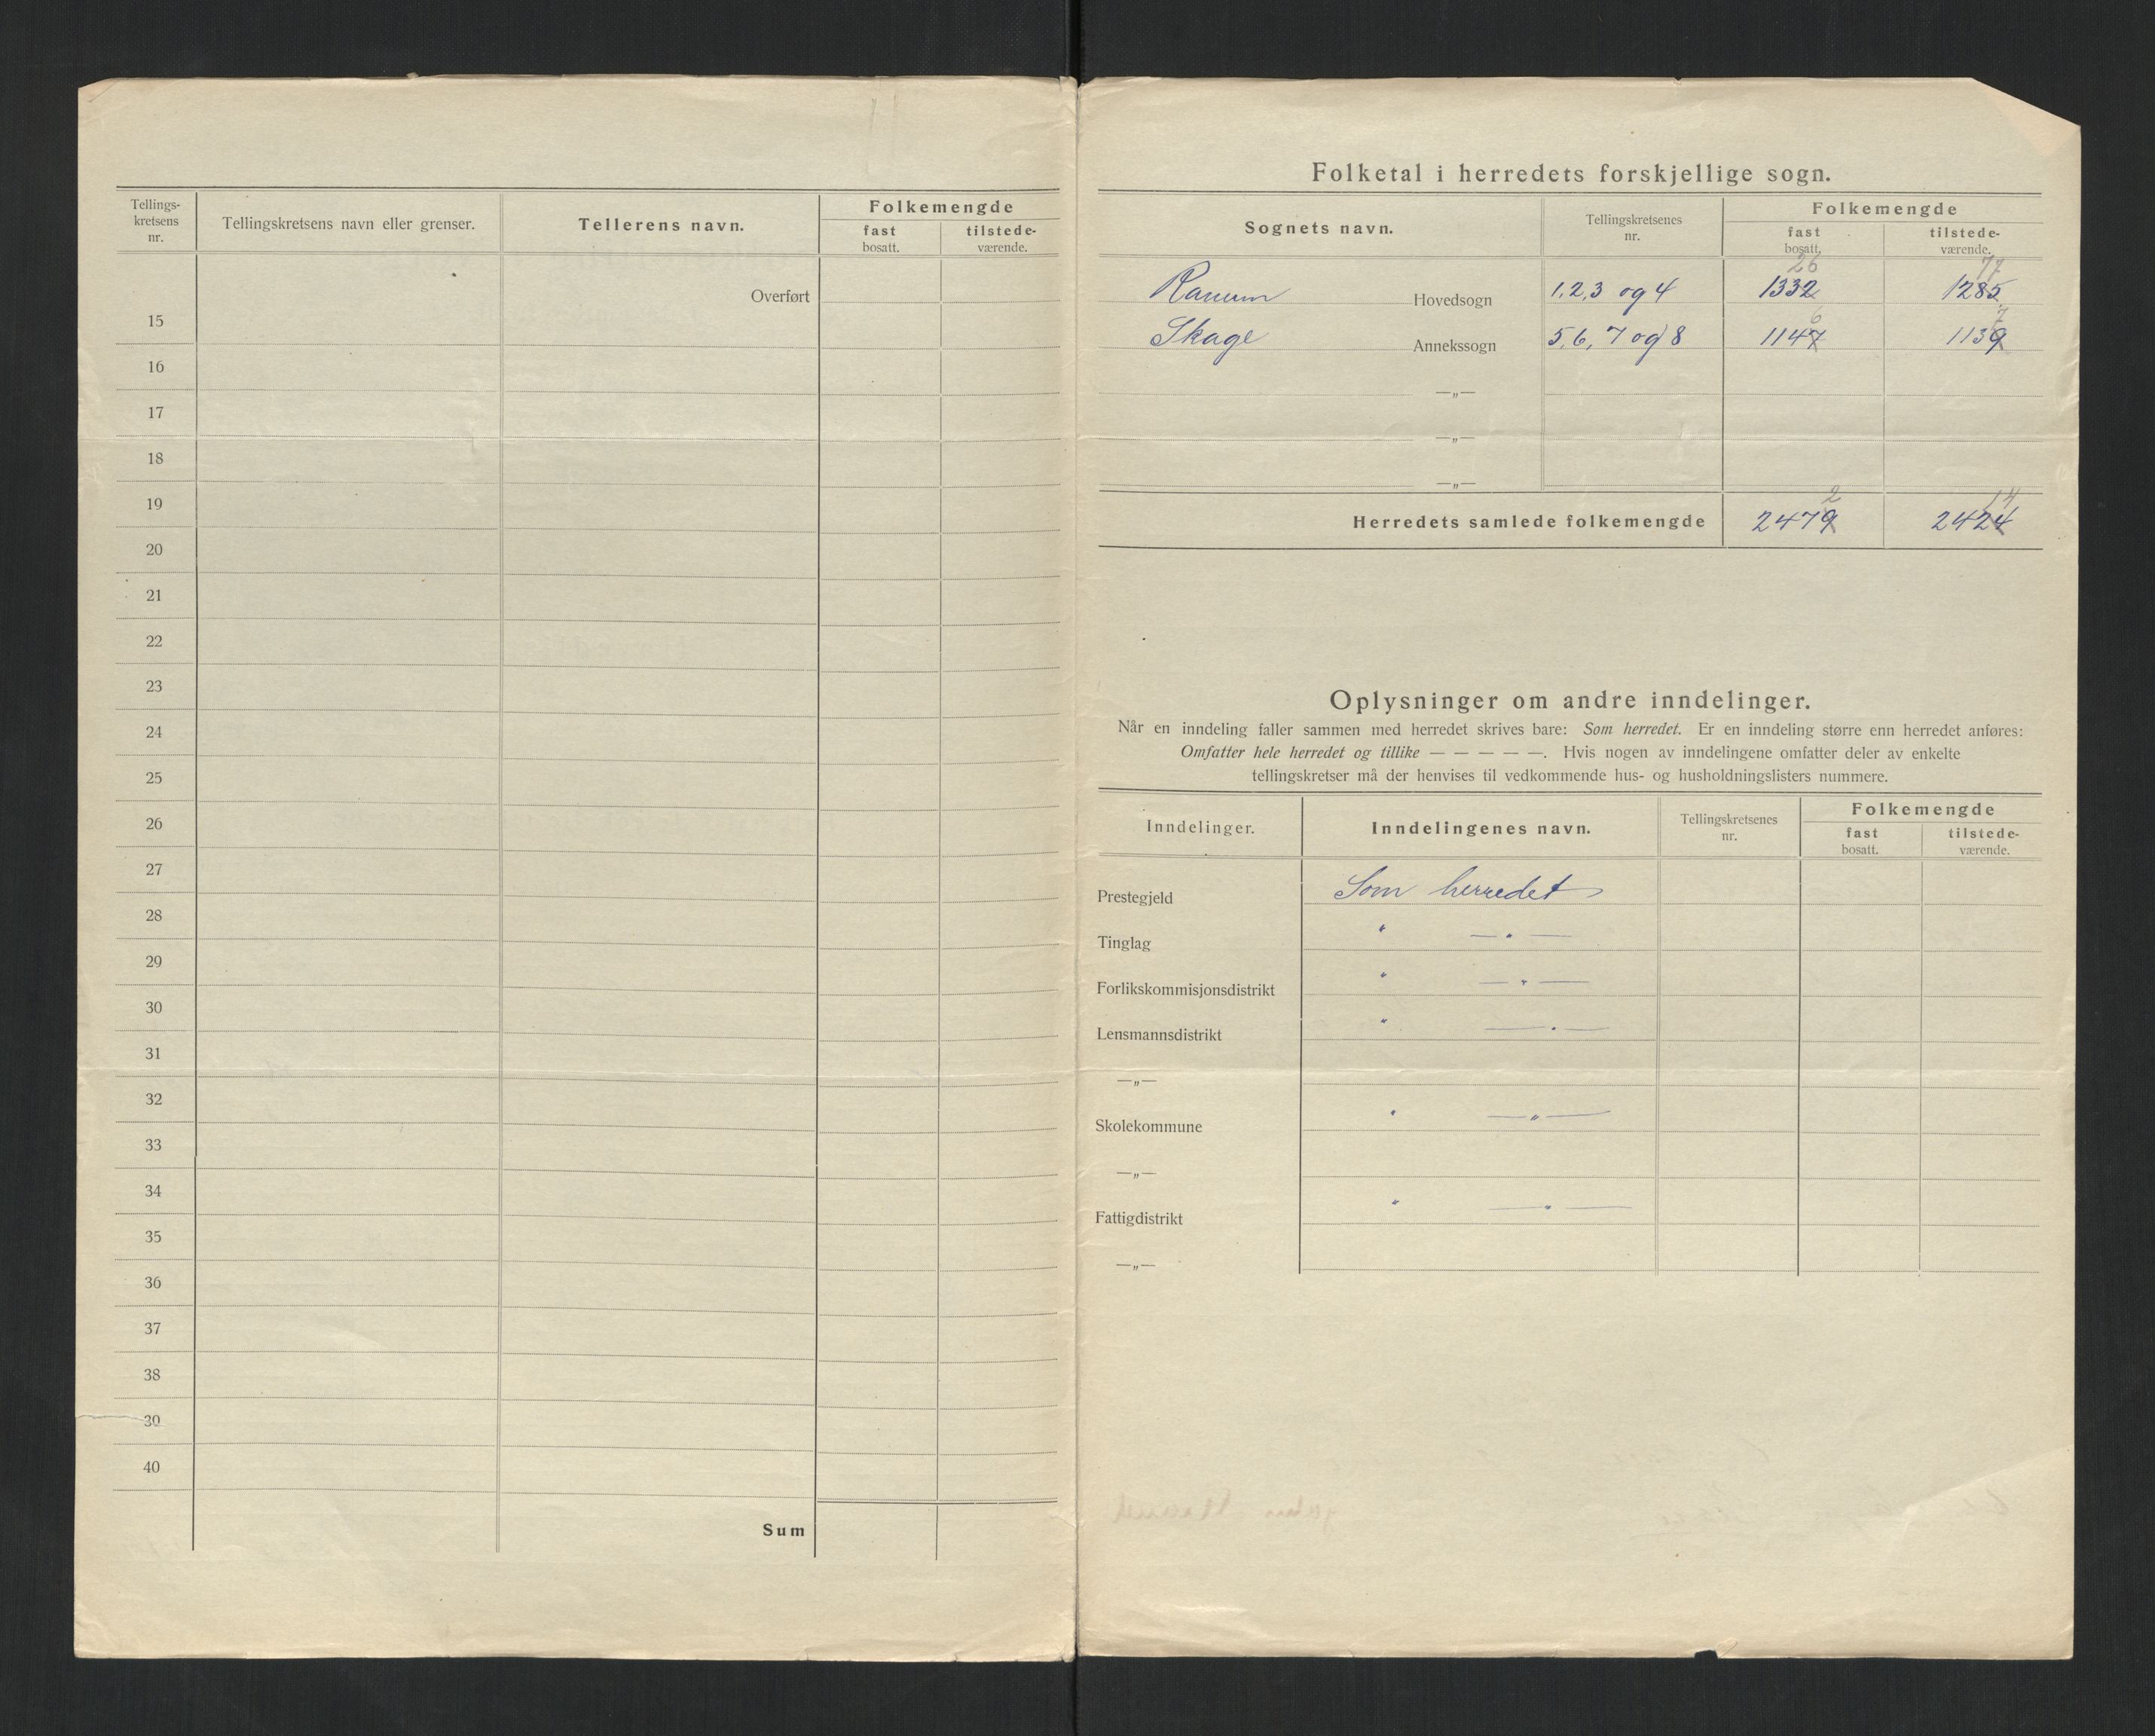 Tellings-
kretsens
nr.
Tellingskretsens navn eller grenser.
Tellerens navn.
Folkemengde
fast
bosatt.
tilstede-
værende.
Overført
15
16
17
18
19
20
21
22
23
24
25
26
27
28
29
30
31
32
33
34
35
36
37
38
39
40
Sum
Folketal i herredets forskjellige sogn.
Sognets navn.
Tellingskretsenes
nr.
Folkemengde
fast
bosatt.
tilstede-
værende.
26 77
Ranum Hovedsogn 1,2,3 og 4 1332 1285
6 7
Skage Annekssogn 5,6,7 og 8 1147 1139
—„—
—„—
—„—
2 14
Herredets samlede folkemengde 2479 2424
Oplysninger om andre inndelinger.
Når en inndeling faller sammen med herredet skrives bare: Som herredet. Er en inndeling større enn herredet anføres:
Omfatter hele herredet og tillike — — — — —. Hvis nogen av inndelingene omfatter deler av enkelte
tellingskretser må der henvises til vedkommende hus- og husholdningslisters nummere.
Inndelinger.
Inndelingenes navn.
Tellingskretsenes
nr.
Folkemengde
fast
bosatt.
tilstede-
værende.
Prestegjeld Som herredet
Tinglag " —"—
Forlikskommisjonsdistrikt " —"—
Lensmannsdistrikt " —"—
—„—
Skolekommune " —"—
—„—
Fattigdistrikt " —"—
—„—